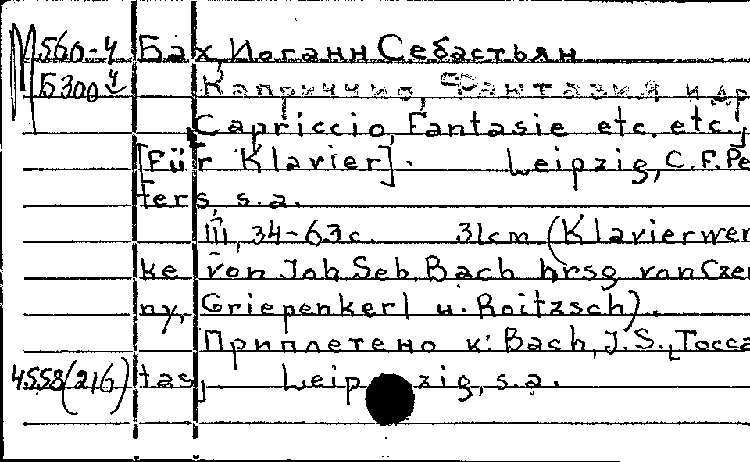 М560-4 Бах, Иоганн Себастьян
Б300 ч Каприччио, Фантазия и др
Capriccio, Fantasie etc. etc.,
[Für Klavier]. Leipzig, C.F.Pe
ters, s.a.
III, 34-63c. 31cm (Klavierwer
ke von Joh. Seb. Bach hrsg von Czer
ny, Griepenkerl u. Roitzsch).
Приплетено к: Bach, J.S., [Tocca
4558(216) tas], Leipzig, s.a.